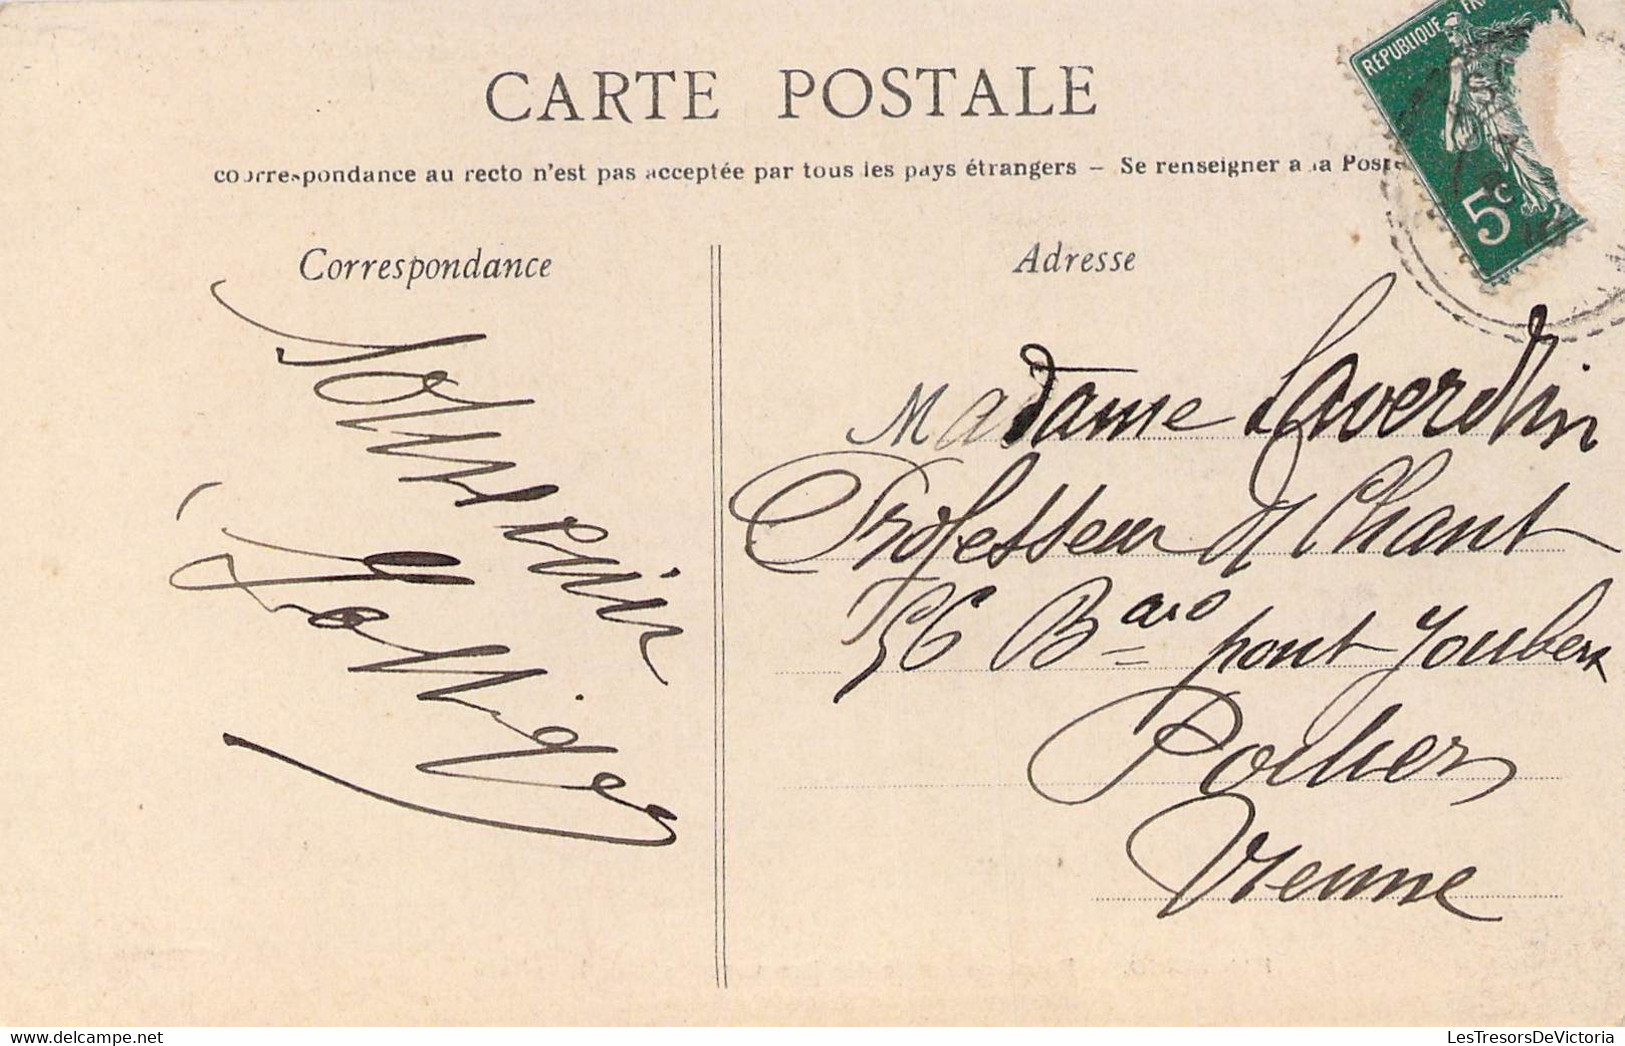 CARTE POSTALE
correspondance au recto n'est pas acceptée par tous les pays étrangers – Se renseigner a la Poste
Correspondance
Adresse
REPUBLIQUE FR
5c
Souvenir
Madame Laverdin
Professeur de Chant
56 pont Joubert
Poitiers
Vienne
LesTresorsDeVictoria